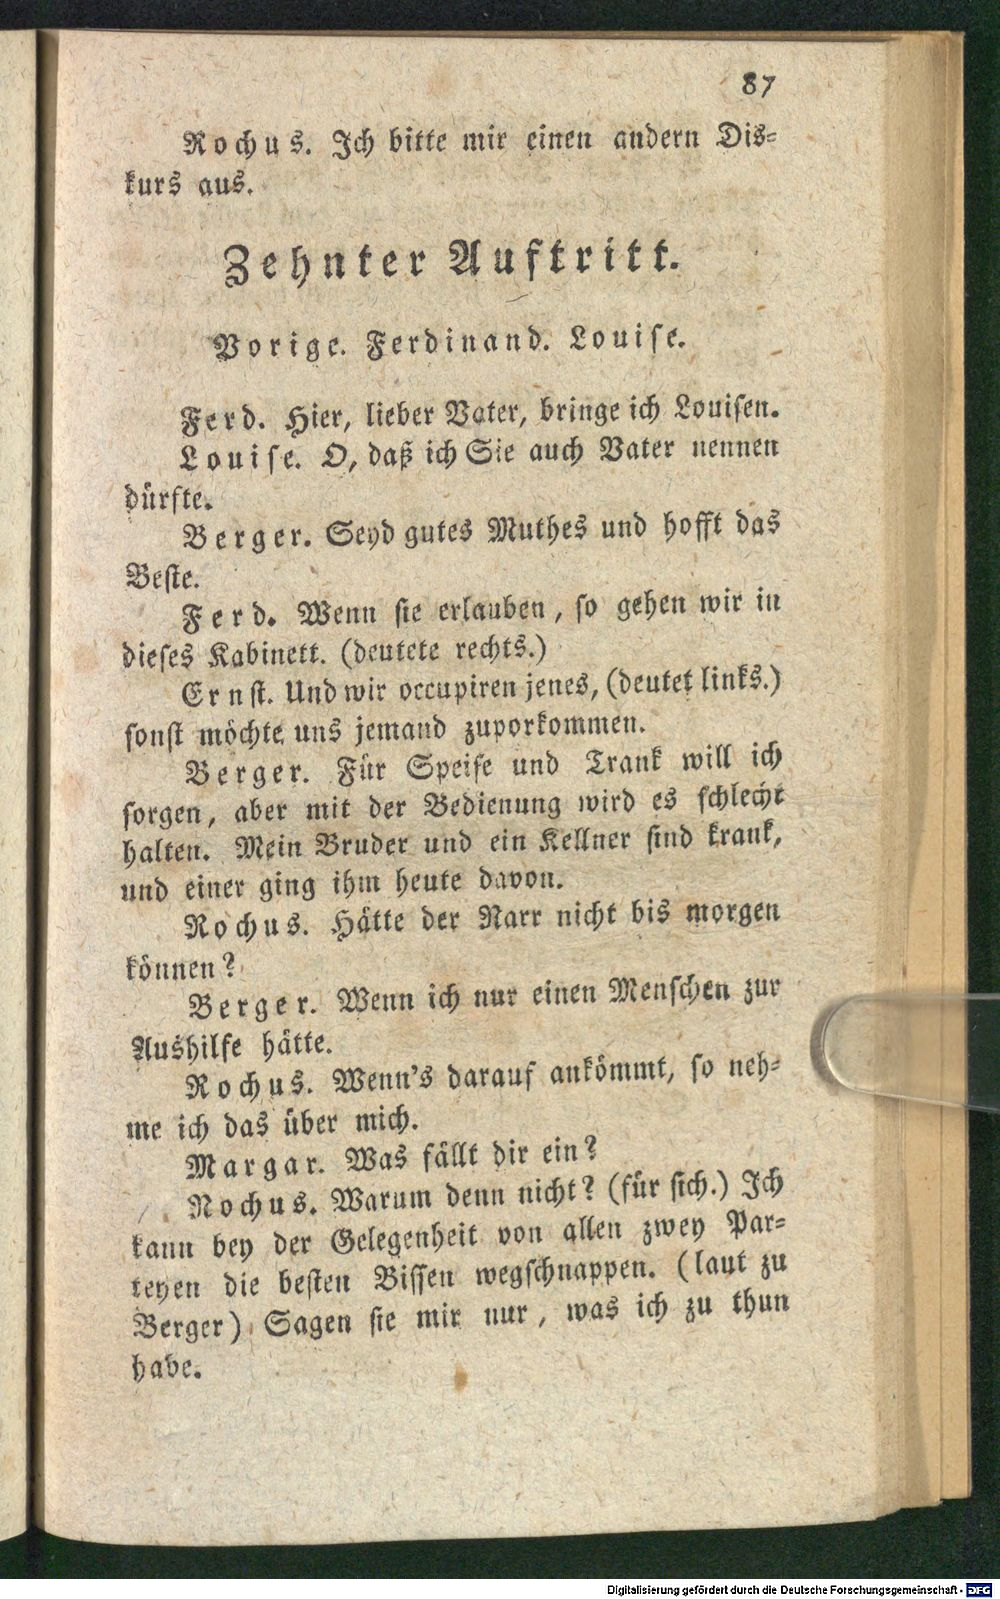 87
Rochus. Ich bitte mir einen andern Dis-
kurs aus.
Zehnter Auftritt.
Vorige. Ferdinand. Louise.
Ferd. Hier, lieber Vater, bringe ich Louisen.
Louise. O, daß ich Sie auch Vater nennen
dürfte.
Berger. Seyd gutes Muthes und hofft das
Beste.
Ferd. Wenn sie erlauben, so gehen wir in
dieses Kabinett. (deutete rechts.)
Ernst. Und wir occupiren jenes, (deutet links.)
sonst möchte uns jemand zuporkommen.
Berger. Für Speise und Trank will ich
sorgen, aber mit der Bedienung wird es schlecht
halten. Mein Bruder und ein Kellner sind krank,
und einer ging ihm heute davon.
Rochus. Hätte der Narr nicht bis morgen
können?
Berger. Wenn ich nur einen Menschen zur
Aushilfe hätte.
Rochus. Wenn's darauf ankömmt, so neh-
me ich das über mich.
Margar. Was fällt dir ein?
Rochus. Warum denn nicht? (für sich.) Ich
kann bey der Gelegenheit von allen zwey Par-
teyen die besten Bissen wegschnappen. (laut zu
Berger) Sagen sie mir nur, was ich zu thun
habe.
Digitalisierung gefördert durch die Deutsche Forschungsgemeinschaft - DFG